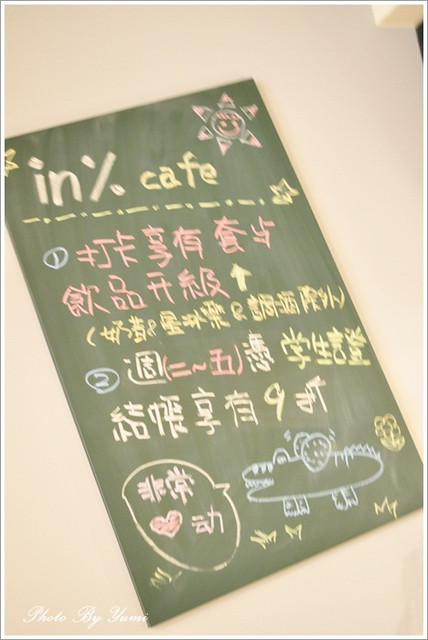 in% cafe
① 打卡享有套歺
飲品升級↑
(奶昔&星冰樂&調酒除外)
② 週(二~五)憑 学生證
結帳享有9折
非常
♥动
Photo By Yumi